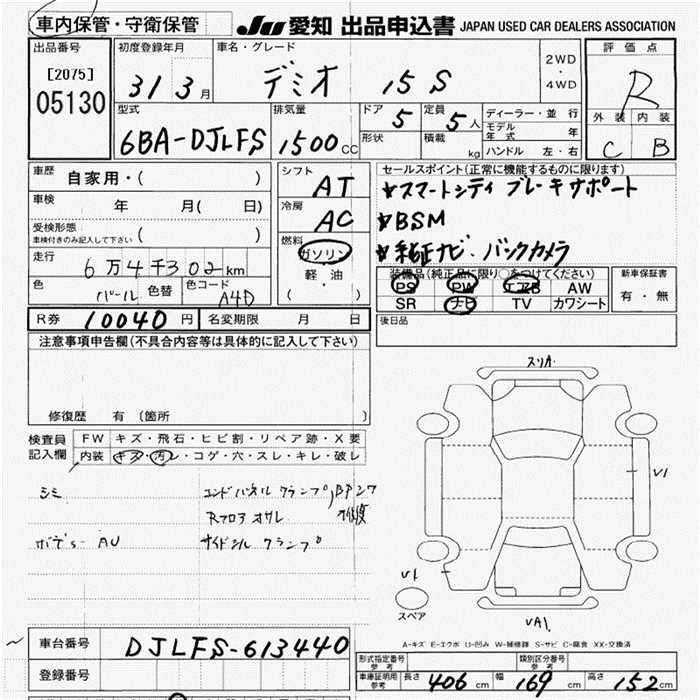 車内保管・守衛保管
JU 愛知 出品申込書 JAPAN USED CAR DEALERS ASSOCIATION
出品番号
[2075]
05130
初度登録年月
31 3月
車名・グレード
デミオ 15S
2WD
・
4WD
評価点
R
外装 内装
C B
型式
6BA-DJLFS
排気量
1500cc
ドア 5
形状
定員 5人
積載 kg
ディーラー・並行
モデル年式 年
ハンドル 左・右
車歴 自家用・( )
車検 年 月( 日)
受検形態 ( )
車検付きのみ記入して下さい
走行 6万4千302km
色 パール 色替 色コード A4D
シフト AT
冷房 AC
燃料 ガソリン
軽油
( ・ )
セールスポイント(正常に機能するものに限ります)
★スマートシティ ブレーキサポート
★BSM
★純正ナビ・バックカメラ
装備品(純正品に限り○をつけてください)
PS PW エアB AW
SR ナビ TV カワシート
新車保証書
有・無
後日品
R券 10040円 名変期限 月 日
注意事項申告欄(不具合内容等は具体的に記入して下さい)
修復歴 有(箇所 )
検査員記入欄
FW キズ・飛石・ヒビ割・リペア跡・X要
内装 キズ・汚レ・コゲ・穴・スレ・キレ・破レ
シミ エンドパネル クランプ,
Rフロア オサレ
ボデー AU サイドシル クランプ
スリ
V1
V1
スペア
VA1
A-キズ E-エクボ U-凹み W-補修跡 S-サビ C-腐食 XX-交換済
車台番号 DJLFS-613440
登録番号
形式指定番号 参考
類別区分番号 参考
車庫証明用 参考 長さ 406cm 幅 169cm 高さ 152cm